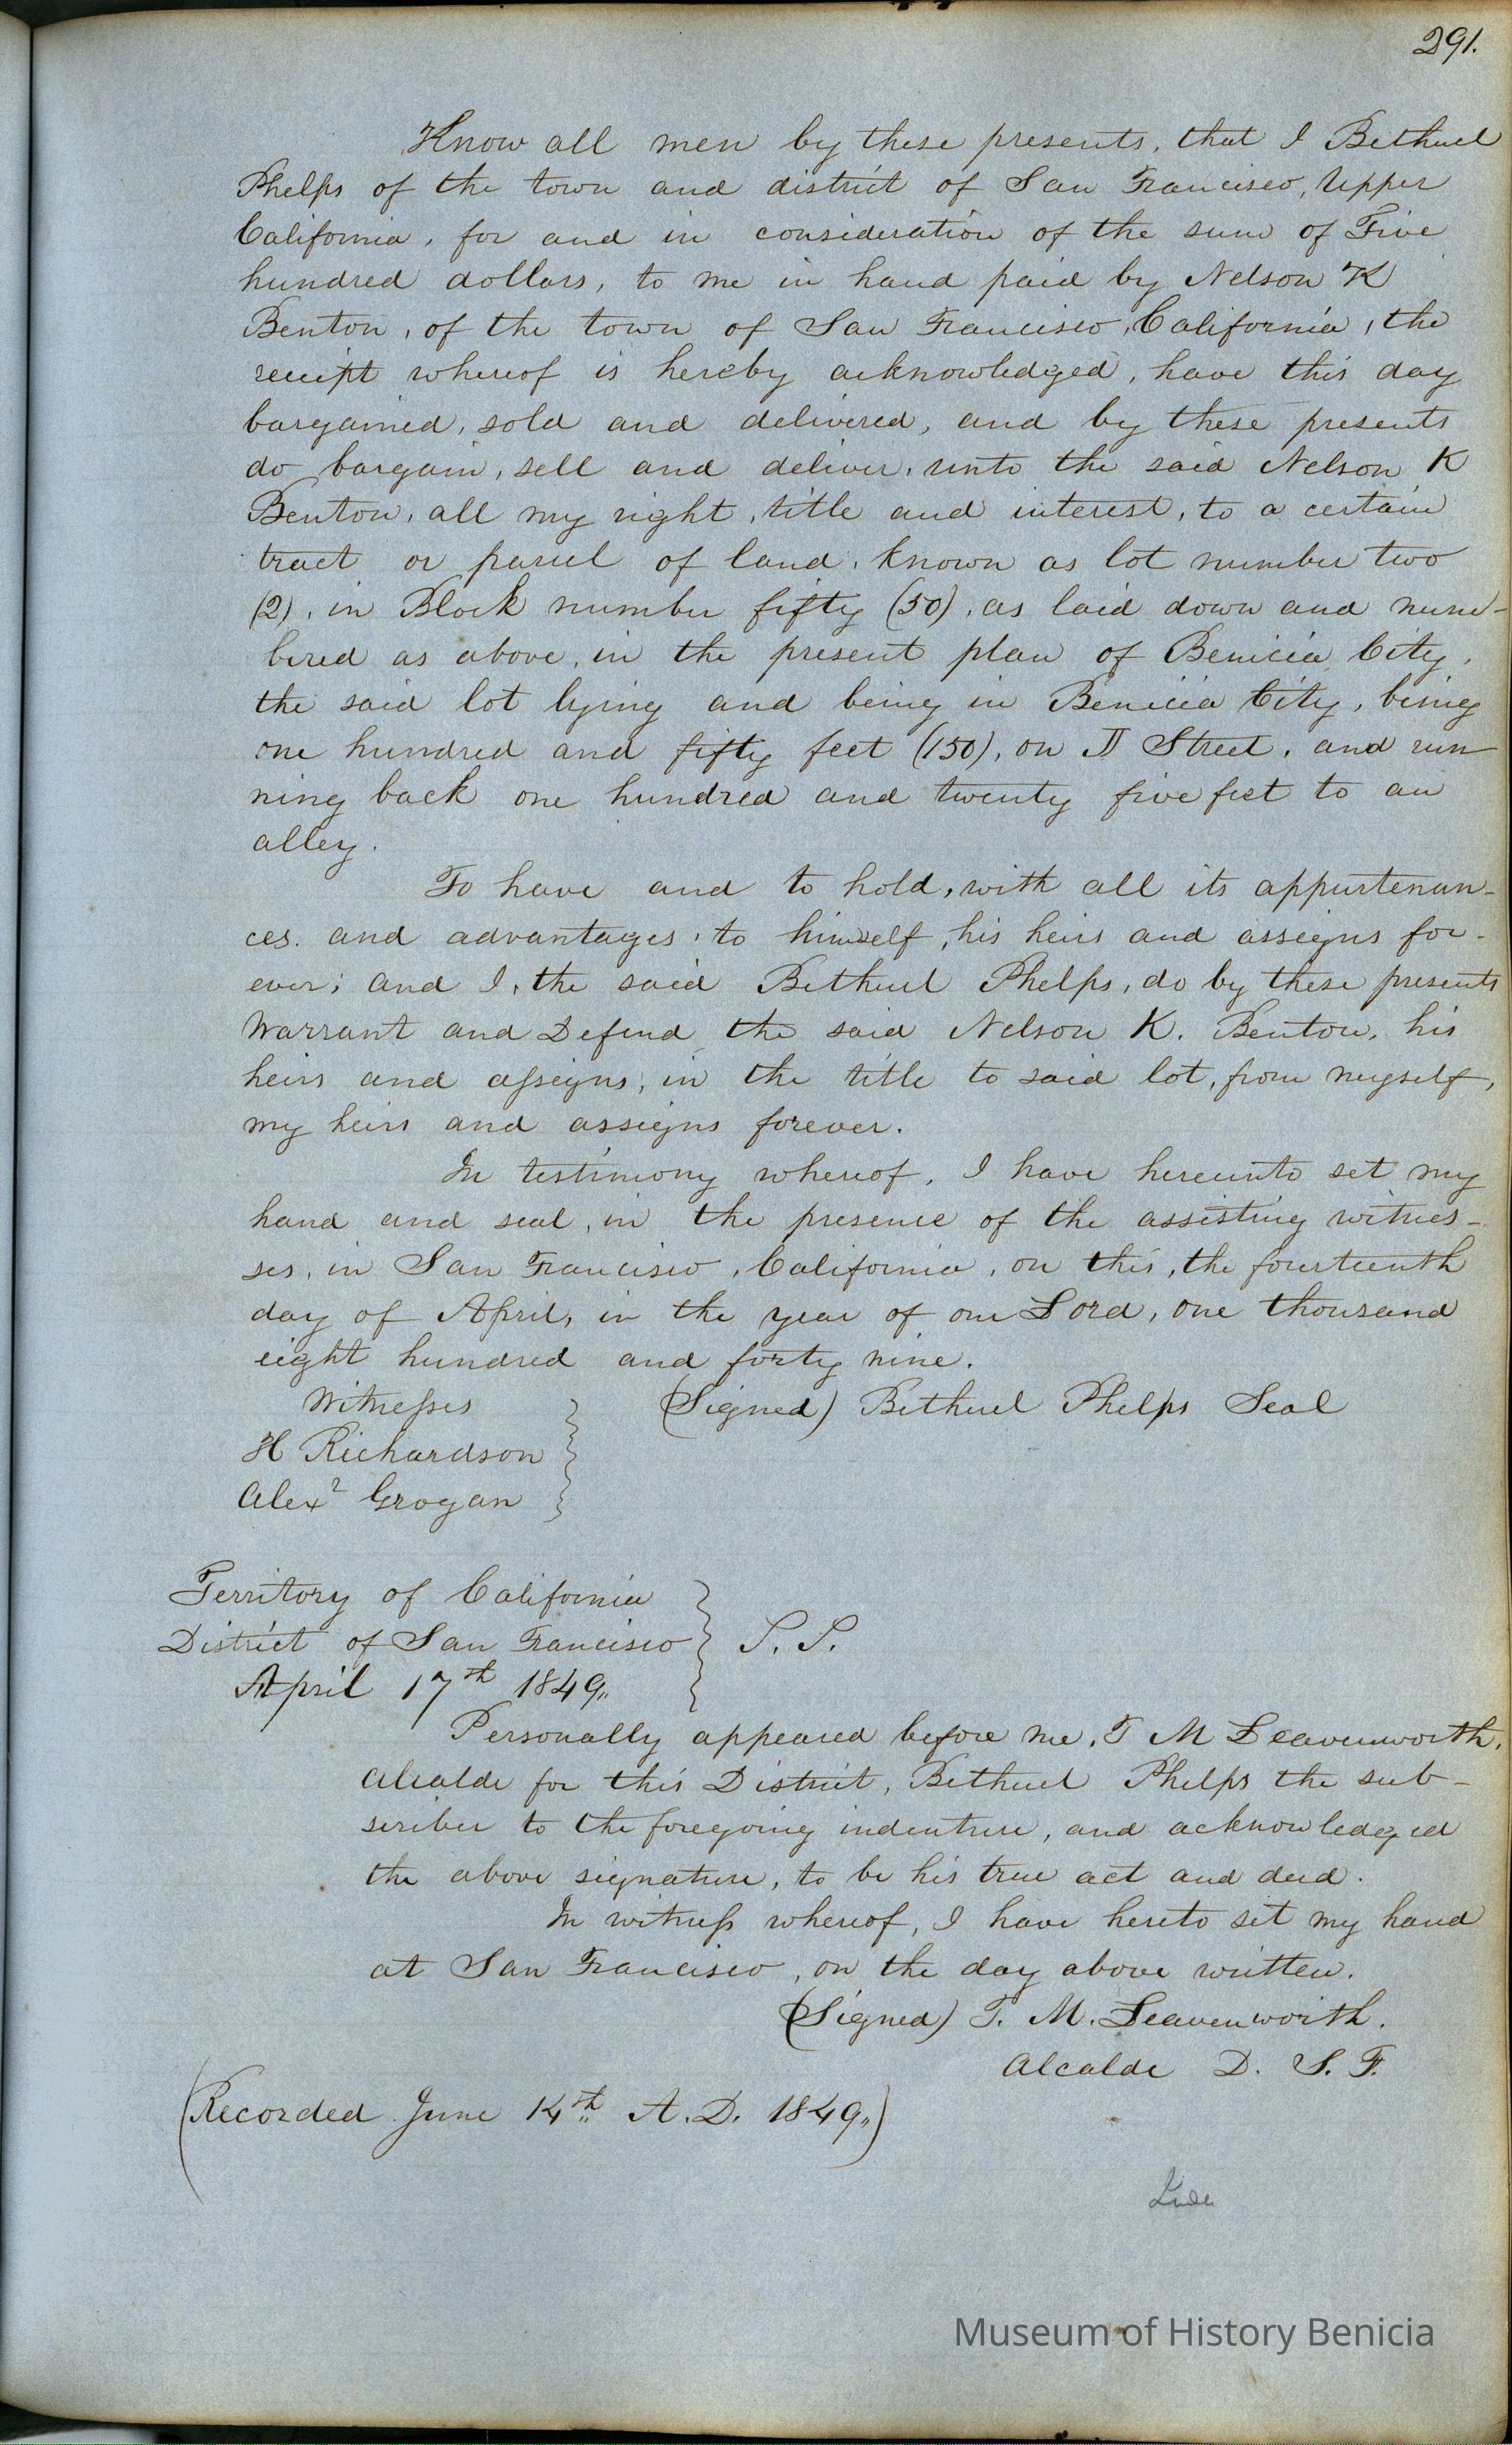 291.
Know all men by these presents, that I Bethuel
Phelps of the town and district of San Francisco, Upper
California, for and in consideration of the sum of Five
hundred dollars, to me in hand paid by Nelson K
Benton, of the town of San Francisco, California, the
receipt whereof is hereby acknowledged, have this day
bargained, sold and delivered, and by these presents
do bargain, sell and deliver, unto the said Nelson K
Benton, all my right, title and interest, to a certain
tract or parcel of land, known as lot number two
(2), in Block number fifty (50), as laid down and num-
bered as above, in the present plan of Benicia City,
the said lot lying and being in Benicia City, being
one hundred and fifty feet (150), on Street, and run
ning back one hundred and twenty five feet to an
alley.
To have and to hold, with all its appurtenan-
ces. and advantages, to himself, his heirs and assigns for-
ever; and I, the said Bethuel Phelps, do by these presents
Warrant and Defend the said Nelson K. Benton, his
heirs and assigns, in the title to said lot, from myself,
my heirs and assigns forever.
In testimony whereof, I have hereunto set my
hand and seal, in the presence of the assisting witnes-
ses, in San Francisco, California, on this, the fourteenth
day of April, in the year of our Lord, one thousand
eight hundred and forty nine.
Witnesses (Signed) Bethuel Phelps Seal
H Richardson
Alexr Grogan
Territory of California
District of San Francisco S. S.
April 17th 1849,,
Personally appeared before me, T M Leavenworth,
Alcalde for this District, Bethuel Phelps the sub-
scriber to the foregoing indenture, and acknowledged
the above signature, to be his true act and deed.
In witness whereof, I have hereto set my hand
at San Francisco, on the day above written.
(Signed) T. M. Leavenworth.
Alcalde D. S. F.
(Recorded June 14th A. D. 1849,,)
Museum of History Benicia